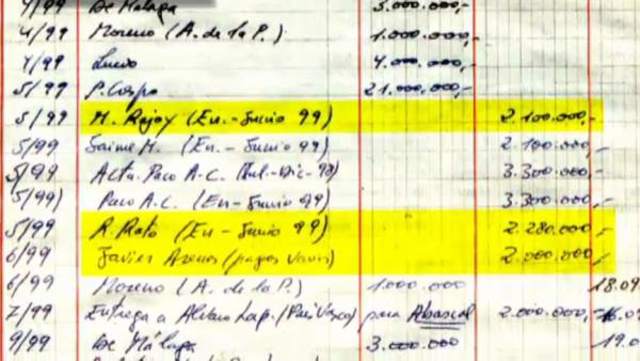 4/99 De Málaga 5.000.000,-
4/99 Moreno (A. de la P.) 1.000.000,-
4/99 4.000.000,-
5/99 P. Crespo 21.000.000,-
5/99 M. Rajoy (En.-Junio 99) 2.100.000,-
5/99 Jaime M. (En.-Junio 99) 2.100.000,-
5/99 Acta. Paco A.C. (Jul-Dic-98) 3.300.000,-
5/99) Paco A.C. (En-Junio 99) 3.300.000,-
5/99 R. Rato (En-Junio 99) 2.280.000,-
6/99 Javier Arenas (pagos varios) 2.000.000,-
6/99 Moreno (A. de la P.) 1.000.000 18.09
7/99 Entrega a Alvaro Lap. (País Vasco) para Abascal 2.000.000,-
9/99 De Málaga 3.000.000 19.0